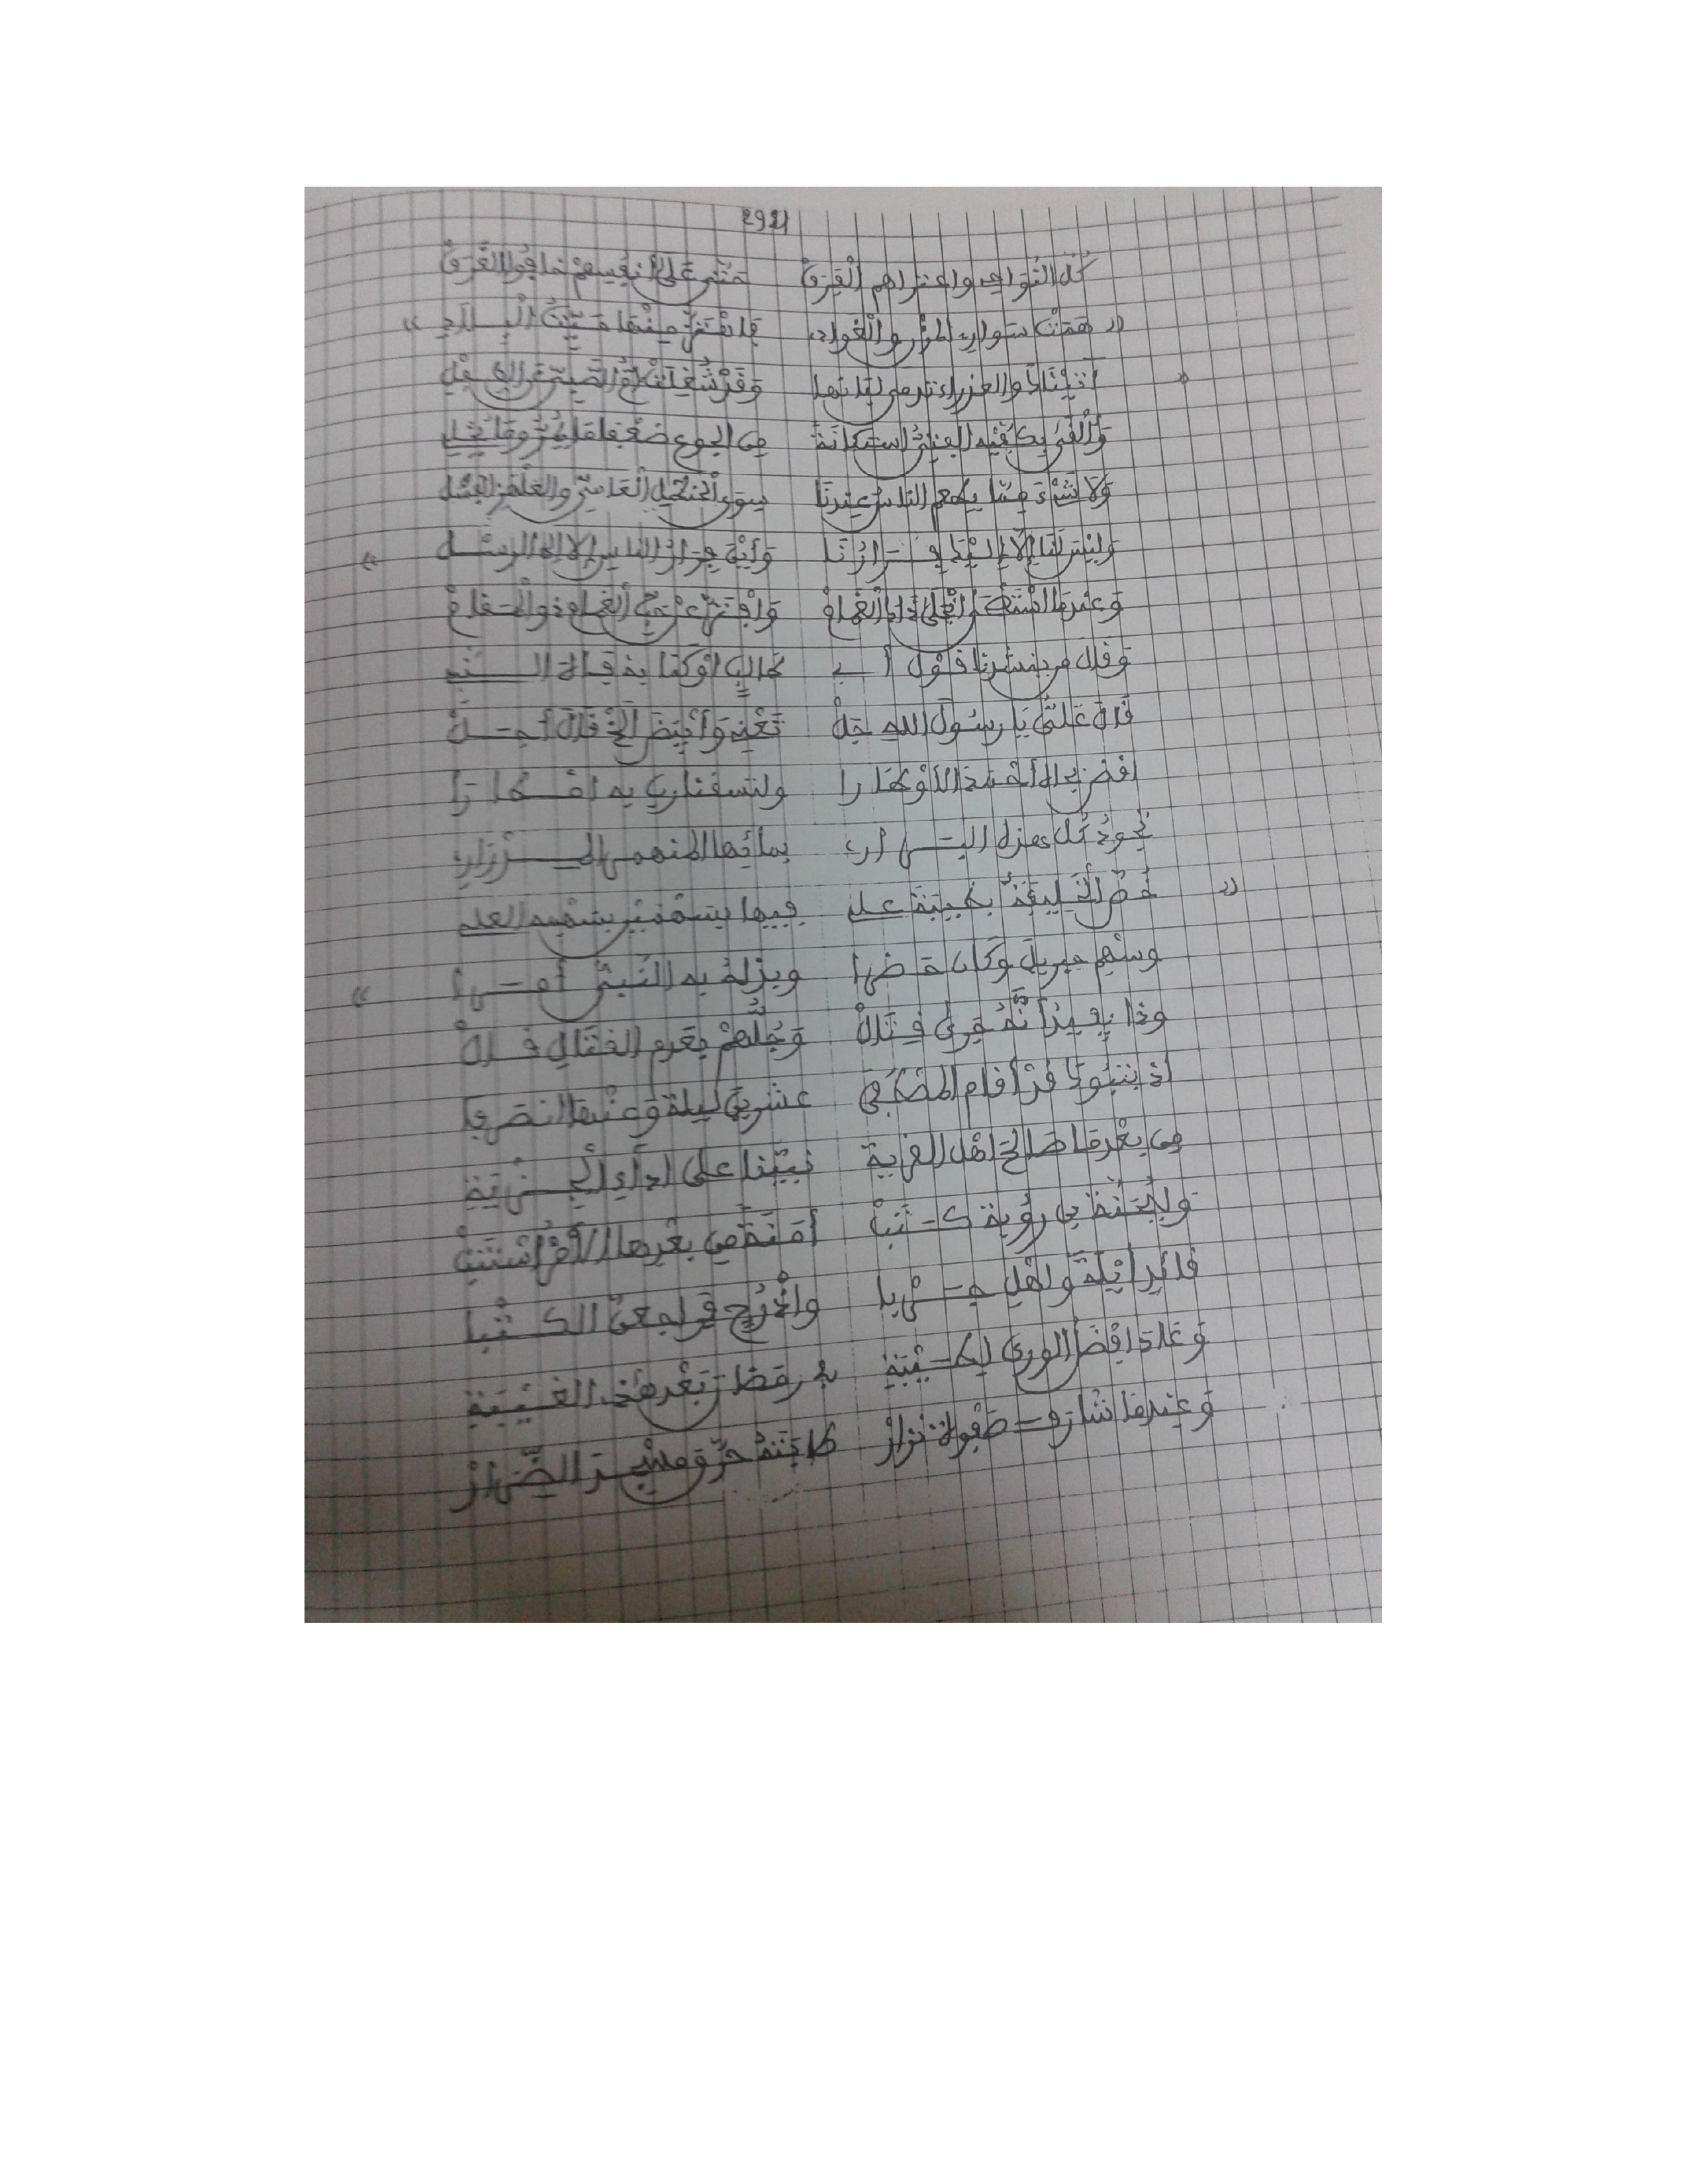 292
كُلَّ النَّوَاحِي واعتراهم الْفَرَقْ حَتَّى عَلَى أَنفُسِهِمْ خافوا الْغَرَقْ
« هَمَتْ سَوارِي المزن والْغوادي فاهْتَزَّ مِنْهَا مَيِّتُ الْبِلَادِ »
« أتَيْنَاكَ والعذراء تدمى لَبَانها وَقَدْ شُغِلَتْ أُمُّ الصَّبِيِّ عن الطفل
وَأَلْقَى بِكَفَّيْهِ الفتى استكانة من الجوع ضعفا ما يُمِرُّ وما يُحْلِي
وَلَا شَيْءَ مِمَّا يأكل الناس عندنا سِوَى الْحَنْظَلِ الْعَامِيِّ والعلهز الفسل
وَلَيْسَ لَنَا إلا إِلَيْكَ فِرَارُنَا وَأَيْنَ فِرَارُ الناس إلا إلى الرسل »
وَعندما اسْتَصْحَى انْجَلَى ذاك الْغَمَامْ وَافْتَرَّ عن حَبِّ الغمام ذو المقام
وَقال من ينشدنا قول أبي طالبٍ أوْ كما به فاه النبي
قال عَلِيٌّ يا رسول الله جلْ تَعْنِي وَأَبْيَضَ الخ قال أجلْ
اقض بجاه أحمد الأوطارا ولتسقنا رب به أمطارا
تجود كل هذه البراري بمائها المنهمر المدرار
خُصَّ الْخَلِيفَةُ بخيبة علي فيها بسهمين بسهمه العلي
وسهم جبريل وكان حضرا وبزله به النبي أمرا »
وذا يفيد أنَّهُ قد قاتلْ وَجُلُّهُمْ بعدم القتال قائلْ
إذ بتبوك قد أقام المصطفى عشرين ليلة وعنها انصرفا
من بعدما صالح اهل القرية نبينا على أداء الْجزية
وليُحَنَّةَ بن رؤبة كتبْ أَمَنَةً من بعدها الأمر اسْتَتَبْ
قائدِ أيْلَةَ ولاهْلِ جربا واذْرُحٍ قد أجمعن الكتبا
وَعاد افضل الورى لطيبة بدر قضا بعد هذي الغيبة
وَعِندما شارف صفوة نزارْ طابتَهُ حرَّق مسجد الضرارْ